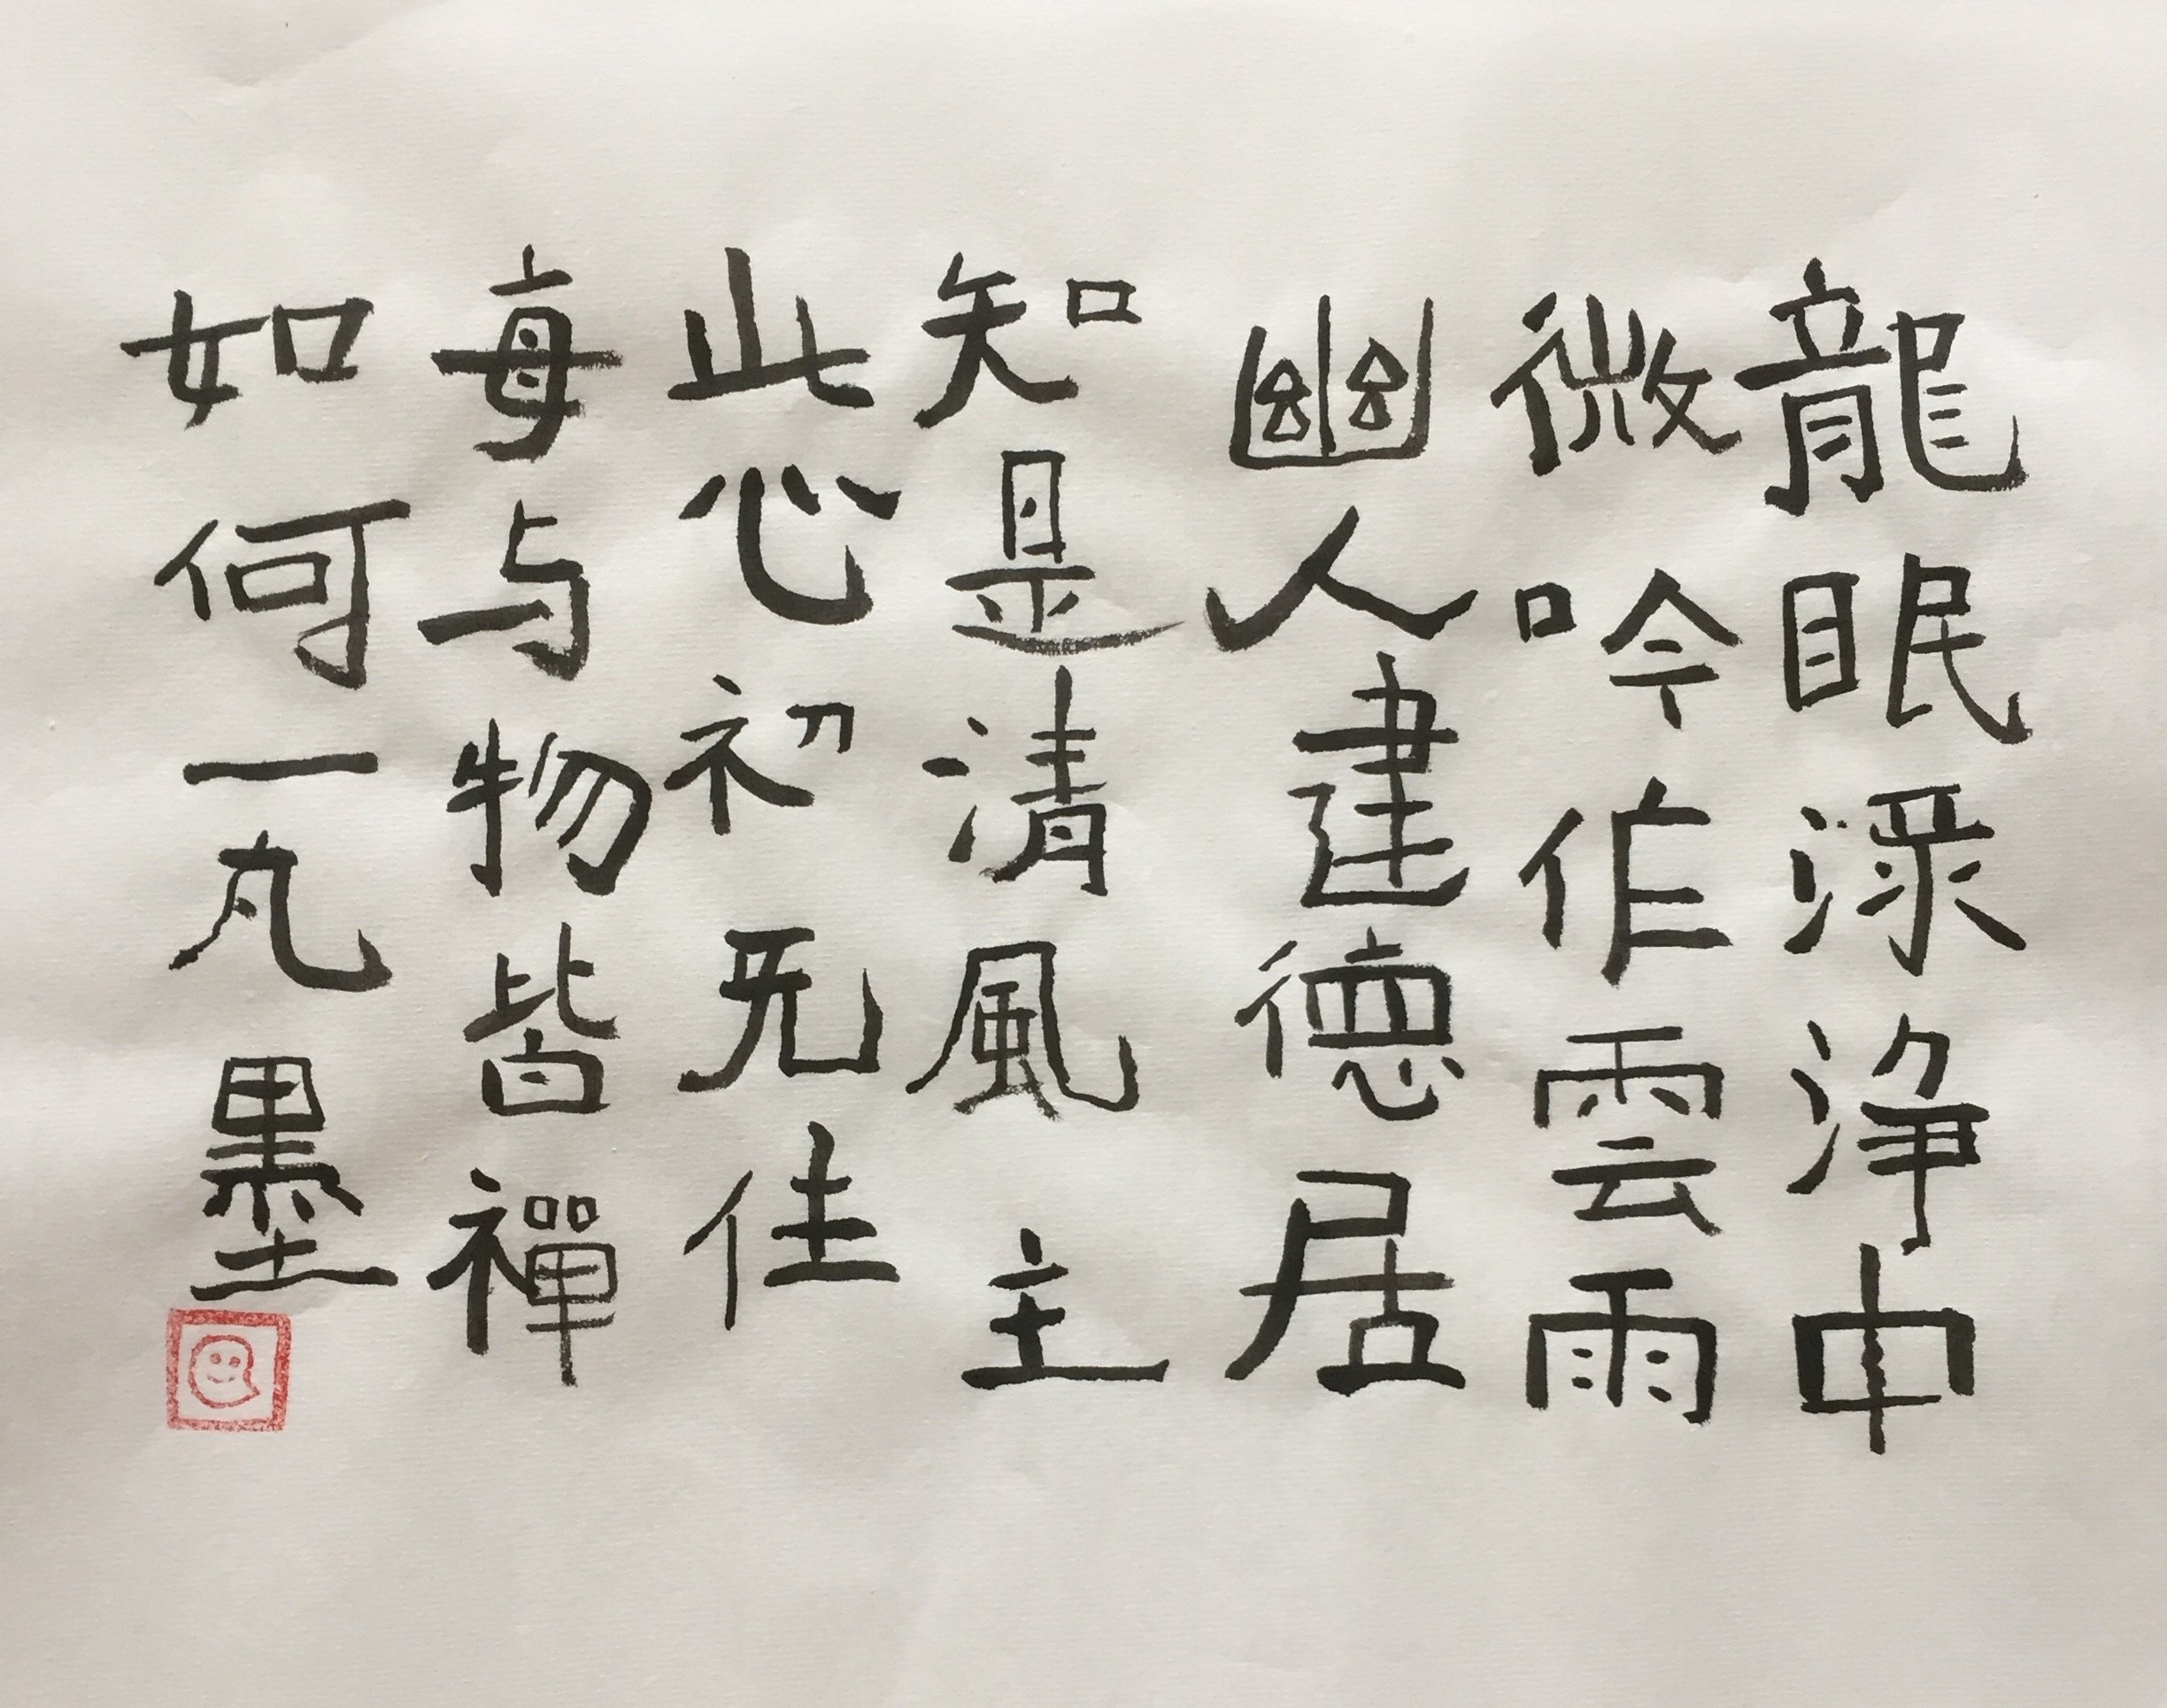 龍眠深浄中
微吟作雲雨
幽人建德居
知是清風主
此心初无住
每与物皆禪
如何一丸墨